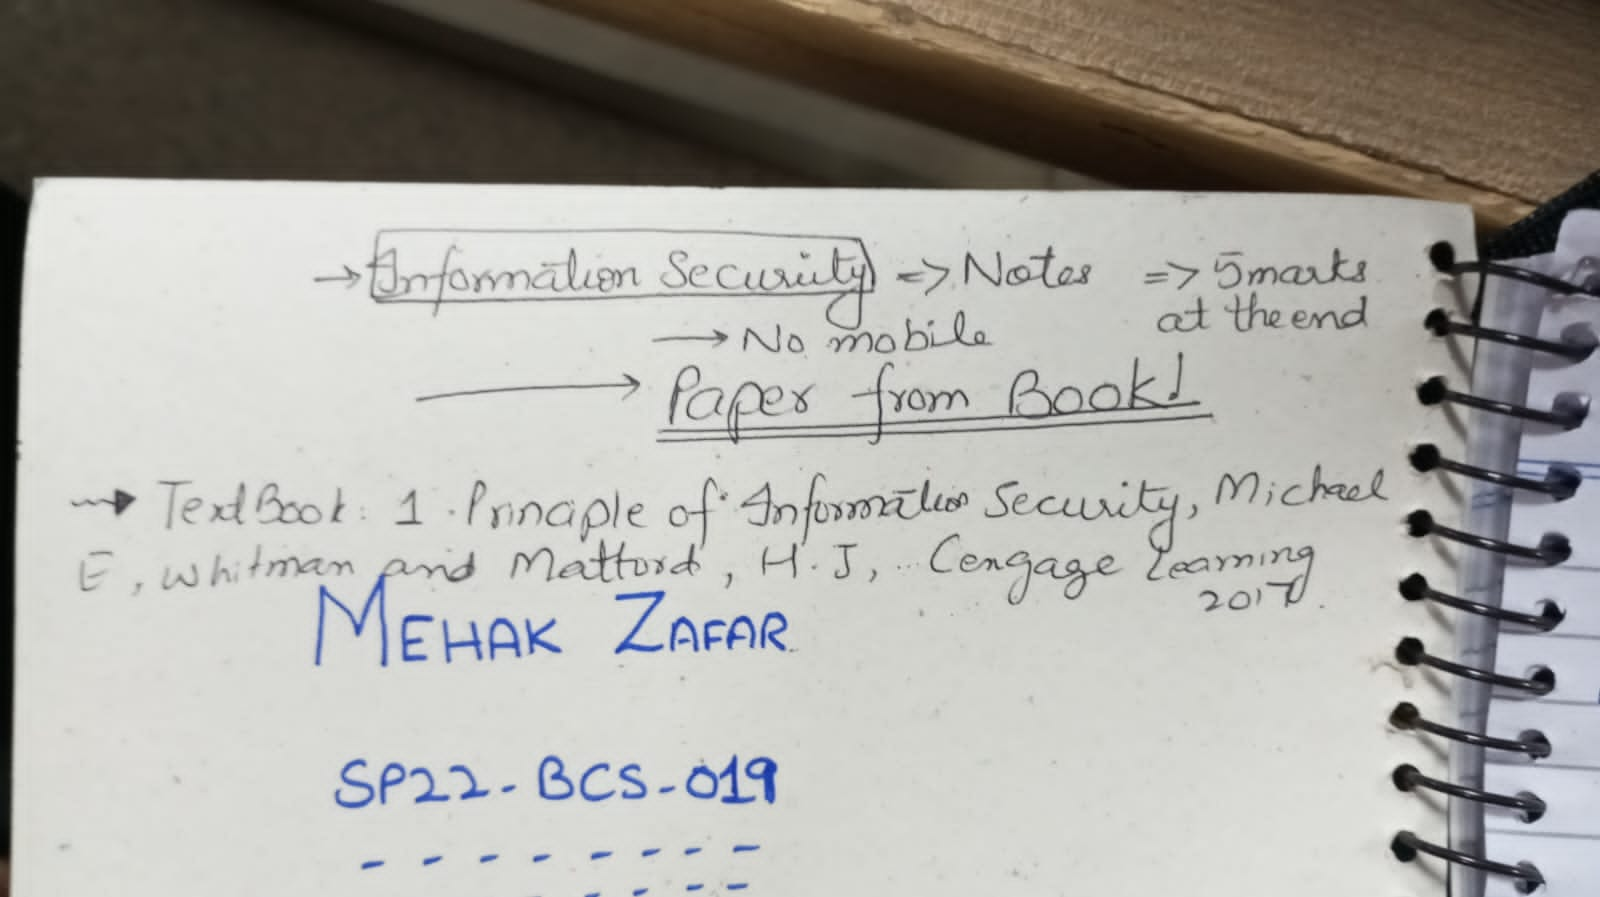 → Information Security => Notes => 5 marks
at the end
→ No mobile
→ Paper from Book!
→ TextBook: 1. Principle of Information Security, Michael
E, Whitman and Mattord, H.J, Cengage Learning
2017.
MEHAK ZAFAR
SP22-BCS-019